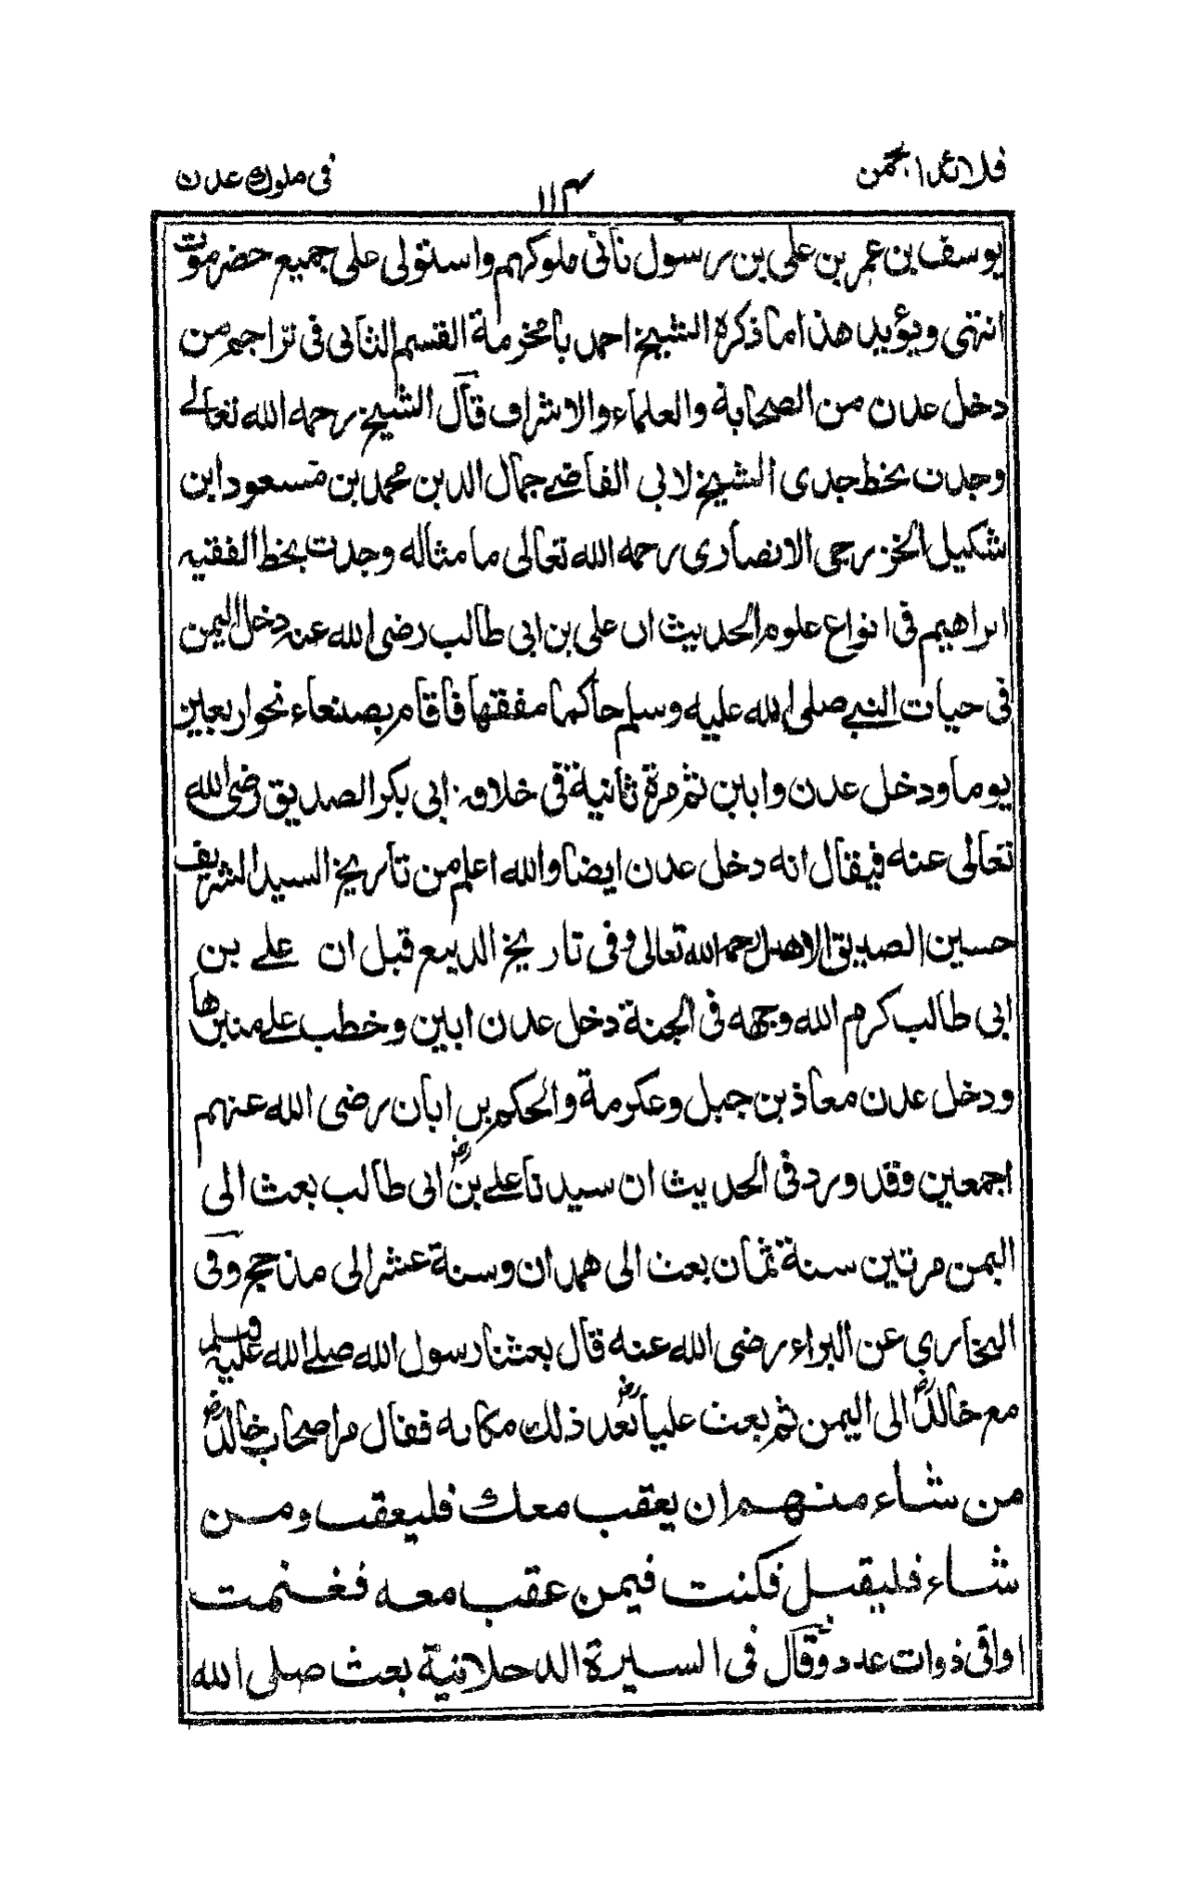 قلائد الجمن
١١٣
فى ملوك عدن
يوسف بن عمر بن على بن رسول ثانى ملوكهم واستولى على جميع حضرموت
انتهى ويؤيد هذا ماذكره الشيخ احمد بامخرمة القسم الثانى فى تراجم من
دخل عدن من الصحابة والعلماء والاشراف قال الشيخ رحمه الله تعالے
وجدت بخط جدى الشيخ لابى القاضے جمال الدين محمد بن مسعود ابن
شكيل الخزرجى الانصارى رحمه الله تعالى ما مثاله وجدت بخط الفقيه
ابراهيم فى انواع علوم الحديث ان على بن ابى طالب رضى الله عنه دخل اليمن
فى حيات النبے صلى الله عليه وسلم حاكما مفقها فاقام بصنعاء نحو اربعين
يوما ودخل عدن وابين ثم مرة ثانية فى خلافه ابى بكر الصديق رضى الله
تعالى عنه فيقال انه دخل عدن ايضا والله اعلم من تاريخ السيد الشريف
حسين الصديق الاهدل رحمه الله تعالى وفى تاريخ الديبع قبل ان علے بن
ابى طالب كرم الله وجهه فى الجنة دخل عدن ابين وخطب علے منبرها
ودخل عدن معاذ بن جبل وعكرمة والحكم بن ابان رضى الله عنهم
اجمعين وقد ورد فى الحديث ان سيدنا علے بن ابى طالب بعث الى
اليمن مرتين سنة ثمان بعث الى همدان وسنة عشر الى مذحج وفى
البخاري عن البراء رضى الله عنه قال بعثنا رسول الله صلے الله عليه وسلم
مع خالد رض الى اليمن ثم بعث عليا رض بعد ذلك مكانه فقال مر اصحاب خالد رض
من شاء منهم ان يعقب معك فليعقب ومن
شاء فليقبل فكنت فيمن عقب معه فغنمت
اواقى ذوات عدد وقال فى السيرة الدحلانية بعث صلى الله